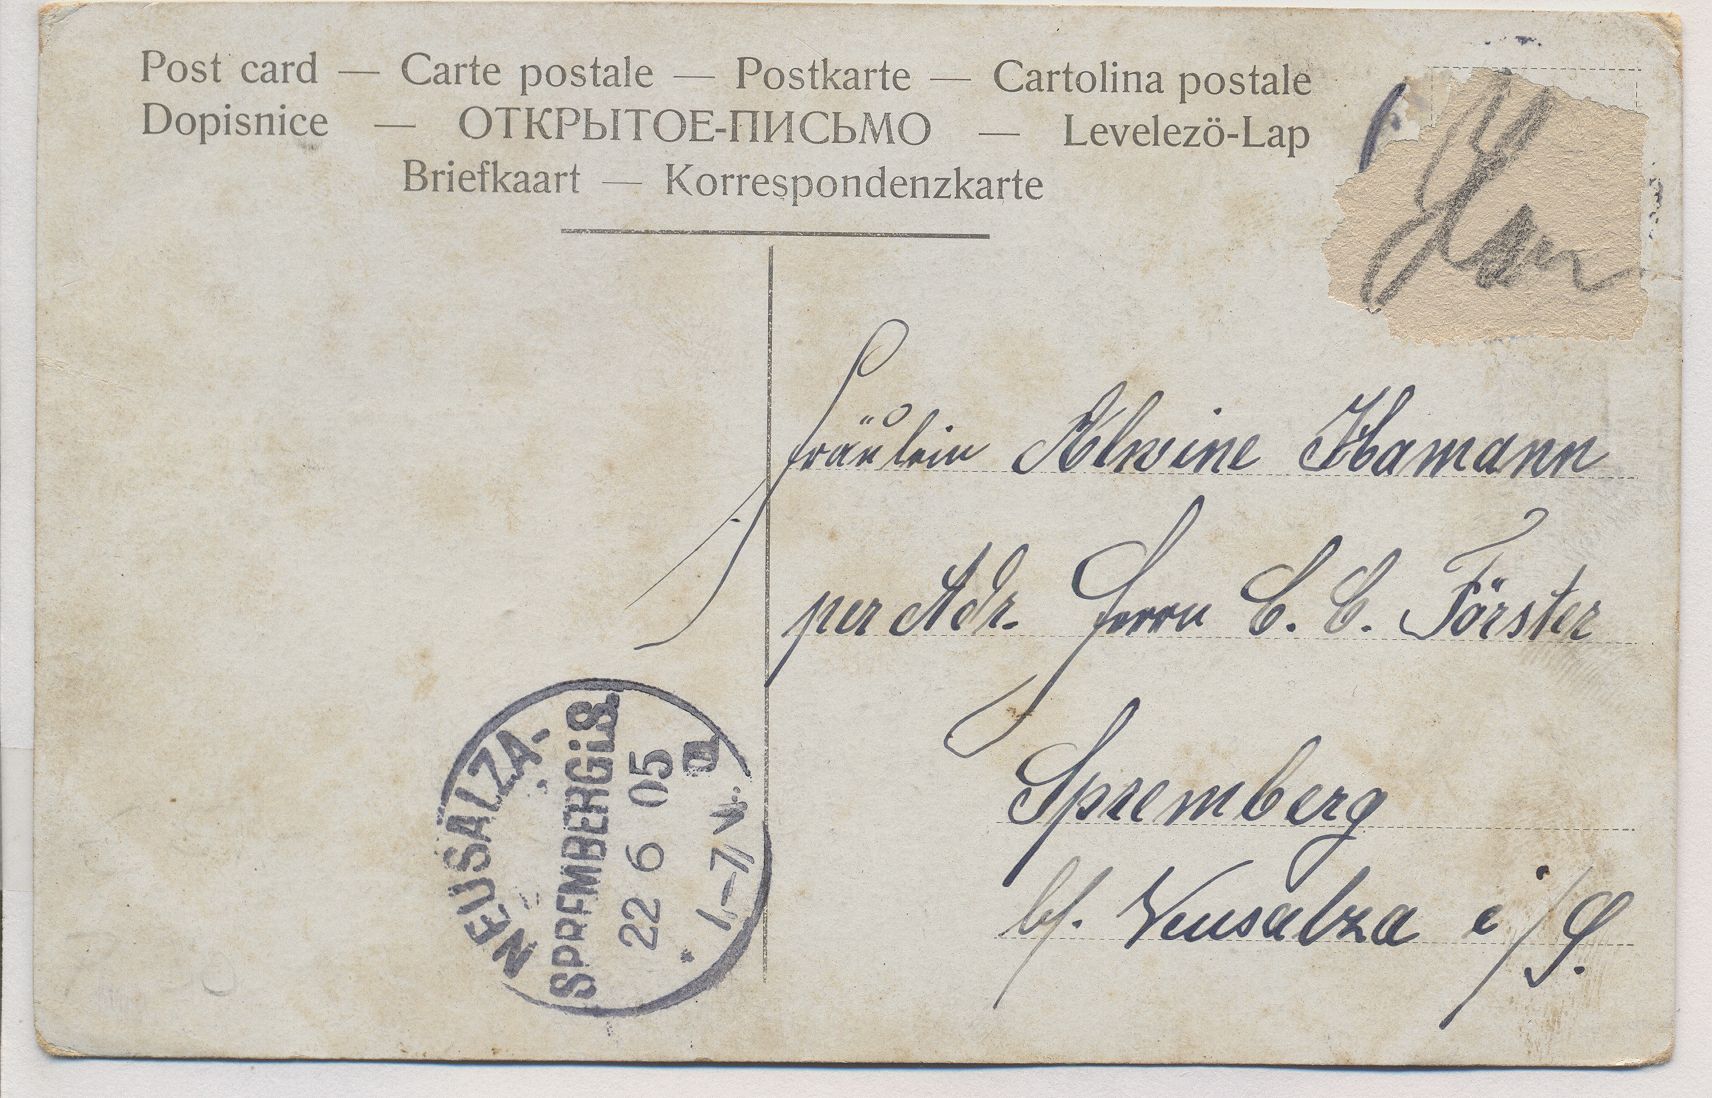 Post card — Carte postale — Postkarte — Cartolina postale
Dopisnice — ОТКРЫТОЕ-ПИСЬМО — Levelezö-Lap
Briefkaart — Korrespondenzkarte
Fräulein Alwine Hamann
per Adr. Herrn C. C. Förster
Spremberg
bf. Neusalza i/S.
NEUSALZA-
SPREMBERG i.S.
22 6 05
* 1-7 V. a